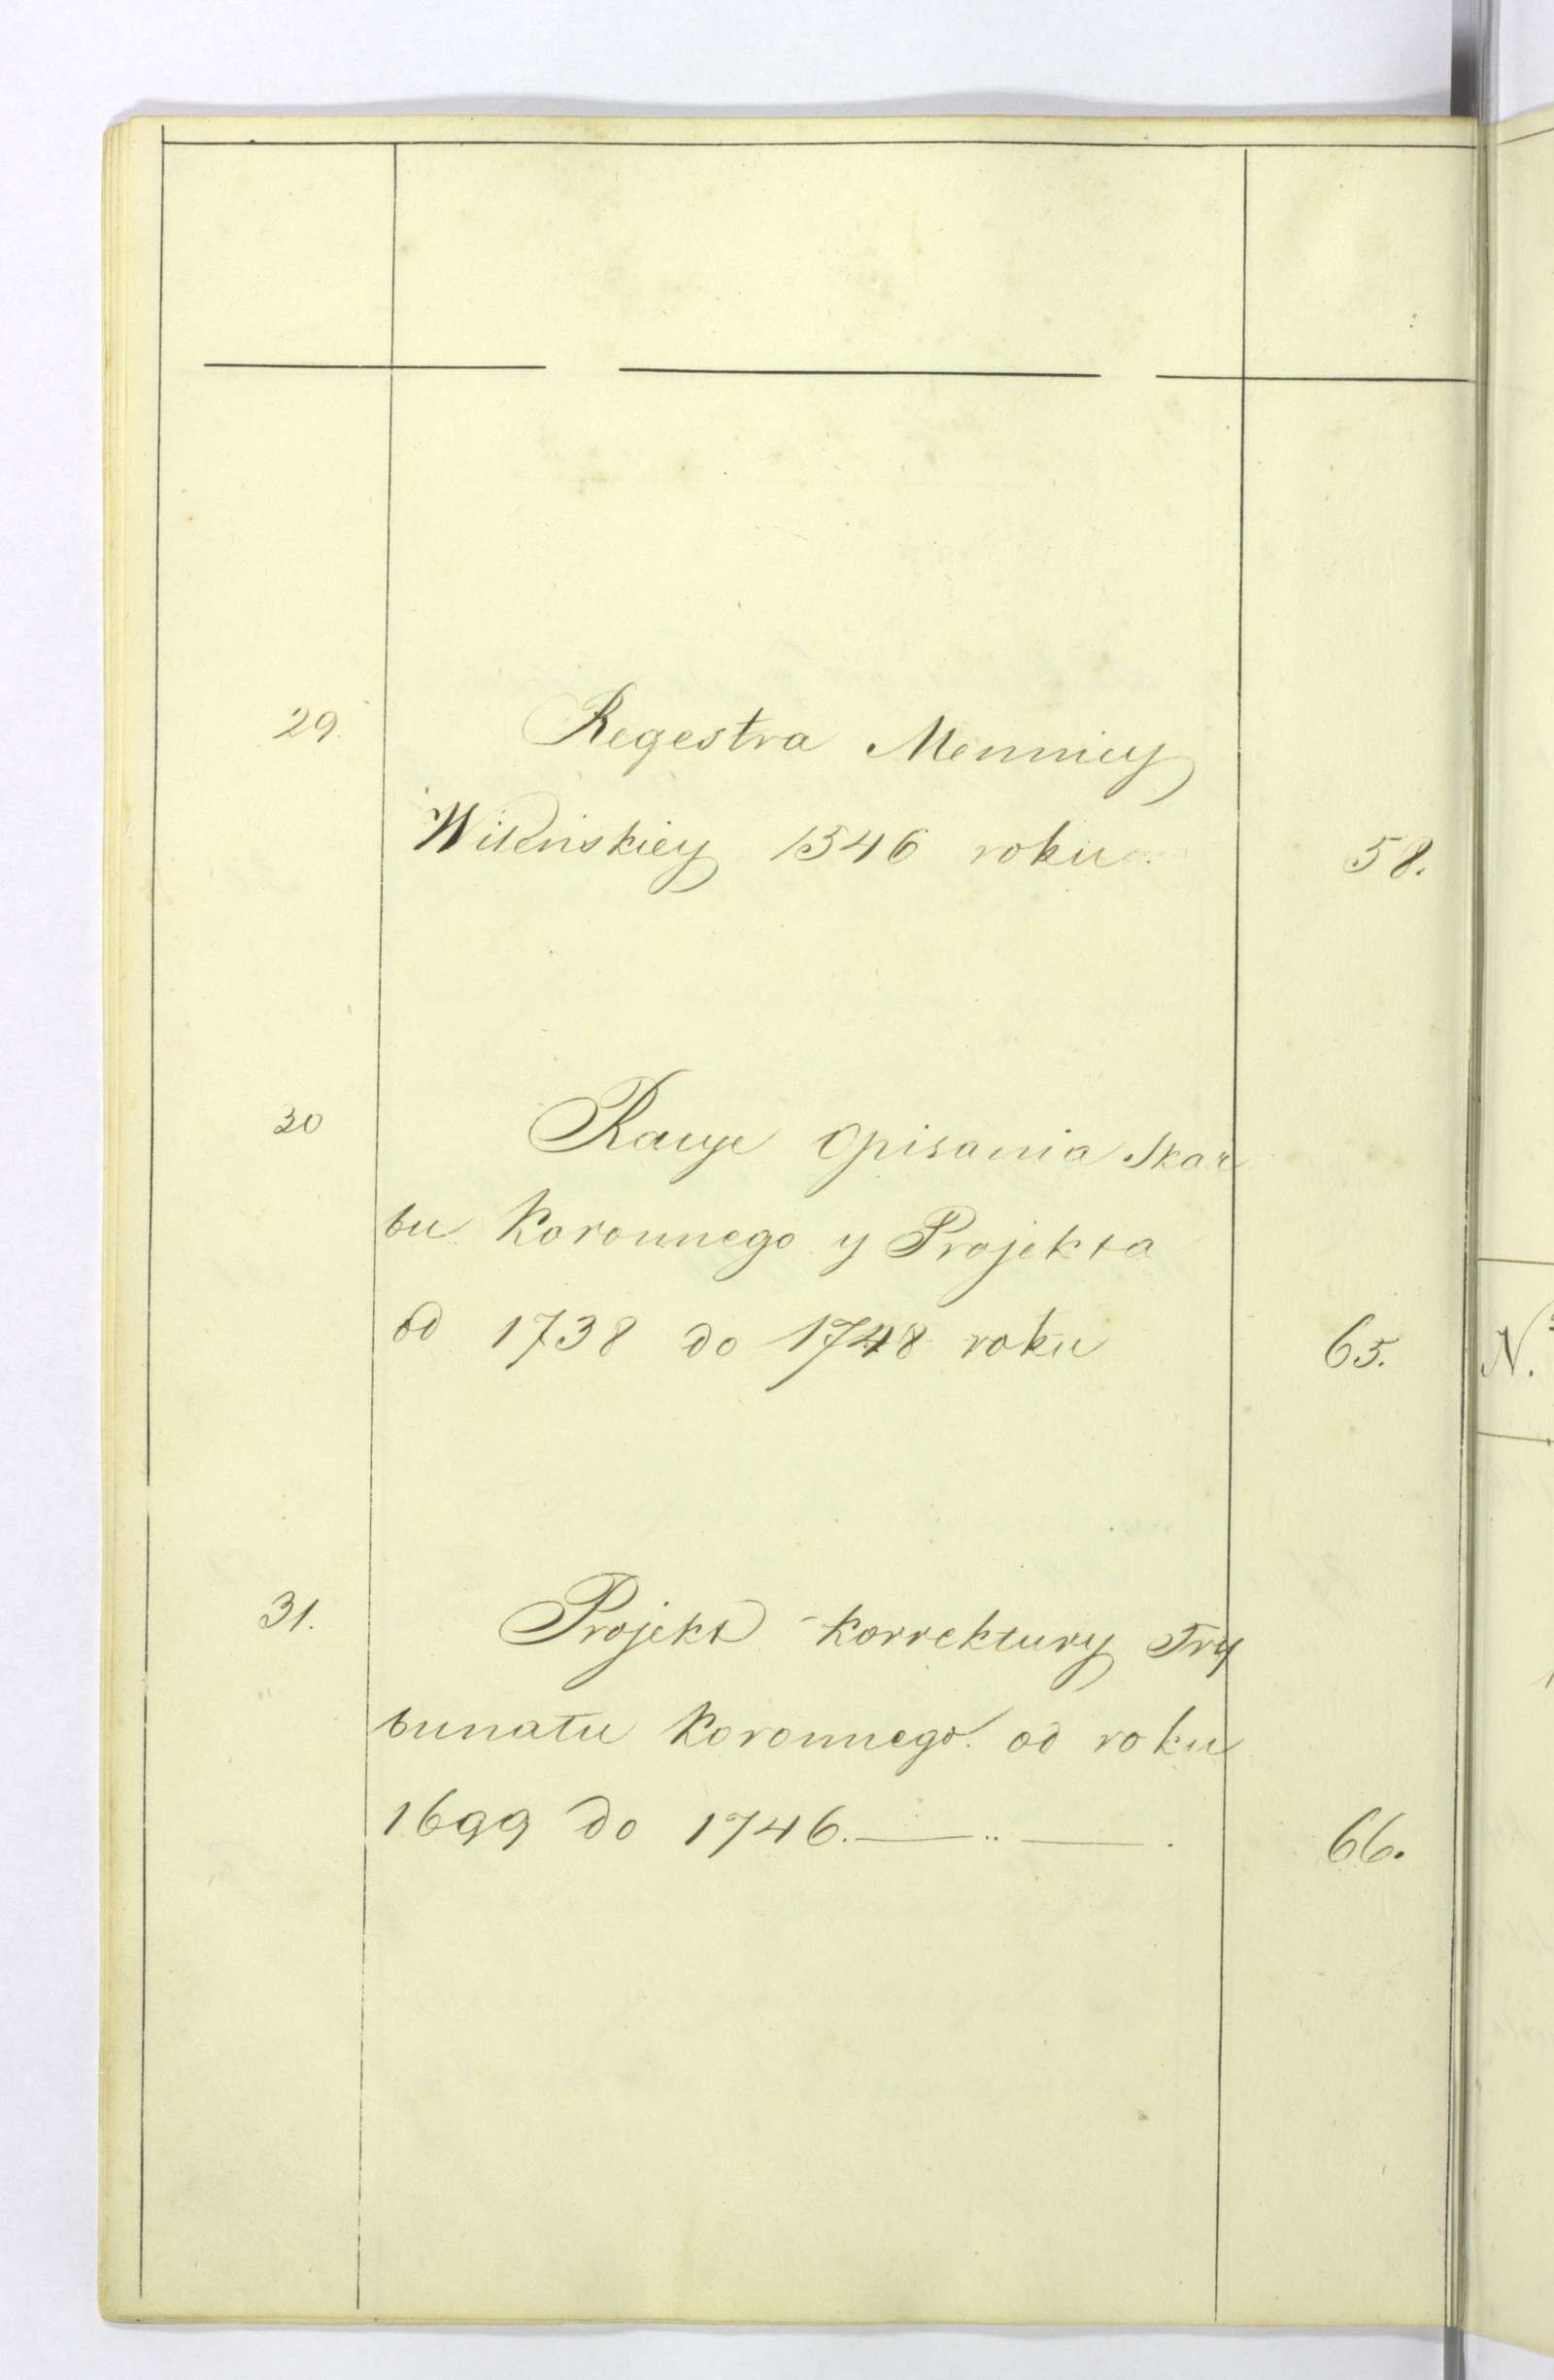 29. Regestra Mennicy
Wileńskiey 1546 roku 58.
30 Racye Opisania Skar
bu Koronnego y Projekta
od 1738 do 1748 roku 65.
31. Projekt Korrektury Try
bunatu Koronnego od roku
1699 do 1746. 66.
N.